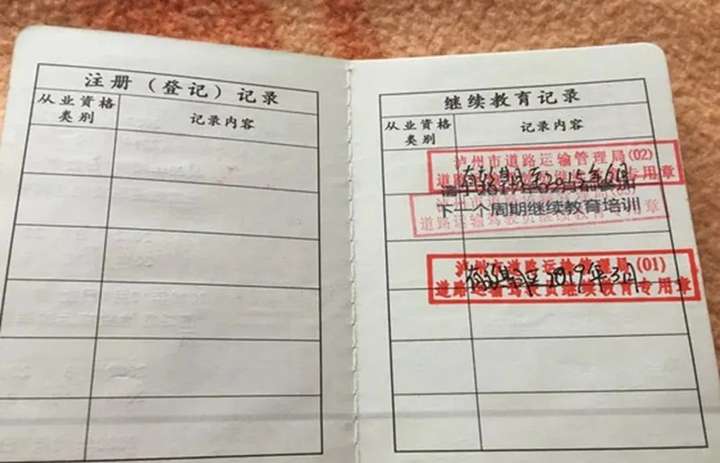 注册（登记）记录
从业资格
类别
记录内容
继续教育记录
从业资格
类别
记录内容
泸州市道路运输管理局(02)
道路运输驾驶员继续教育专用章
有效期至2015年6月
下一个周期继续教育培训
泸州市道路运输管理局(01)
道路运输驾驶员继续教育专用章
2019年3月